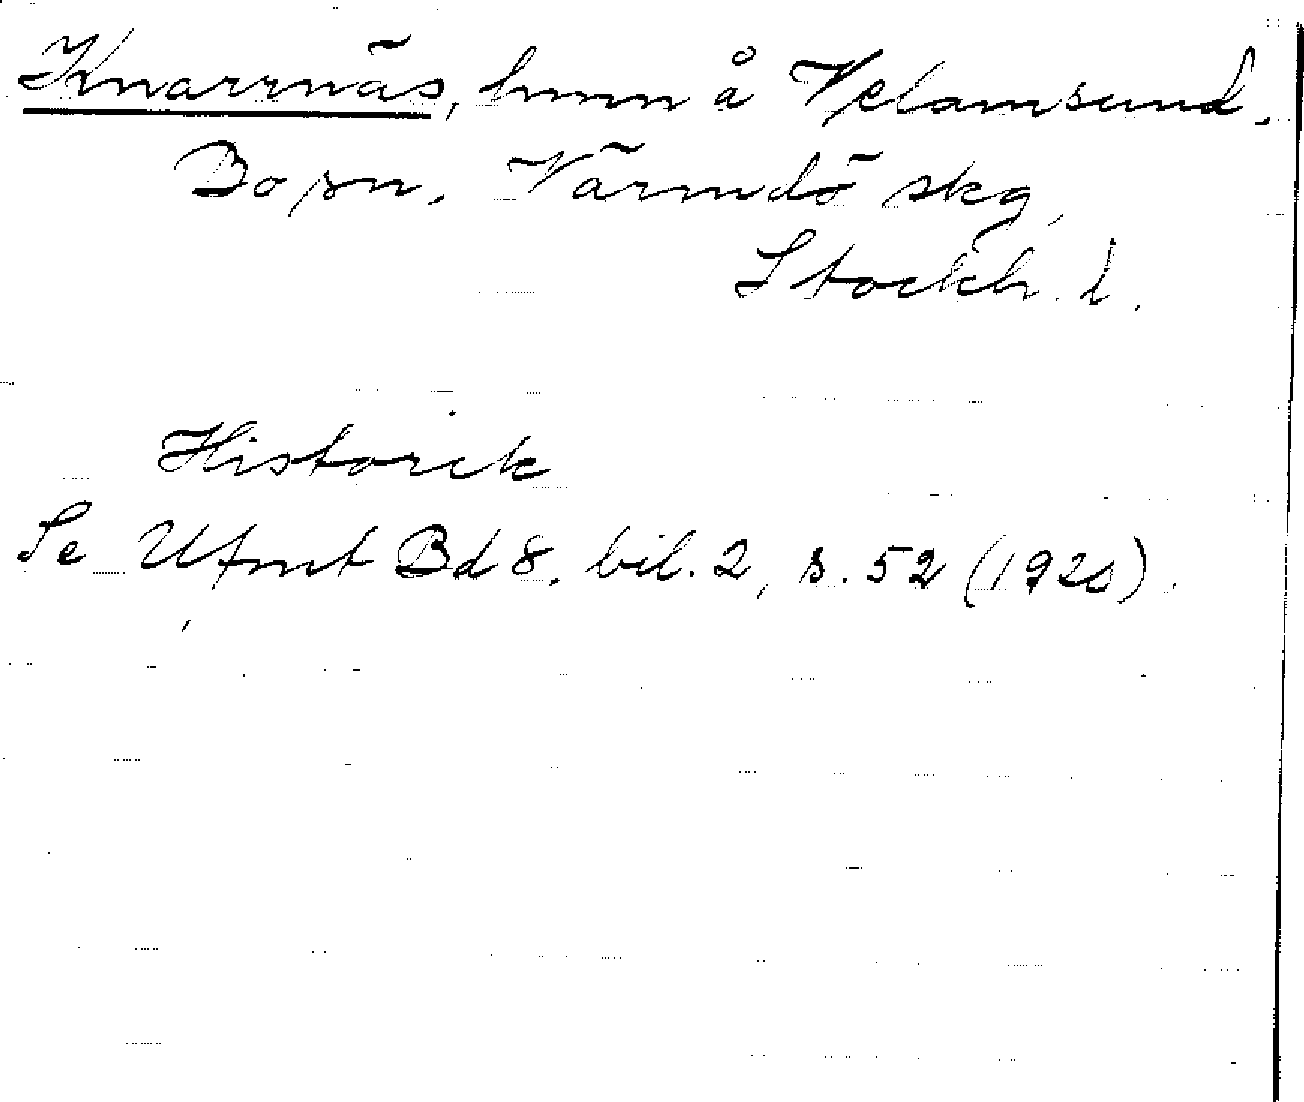 Knarrnäs, hmn å Velamsund.
Bo sn. Värmdö skg,
Stockh. l.
Historik
Se Ufmt Bd 8, bil. 2, s. 52 (1920).